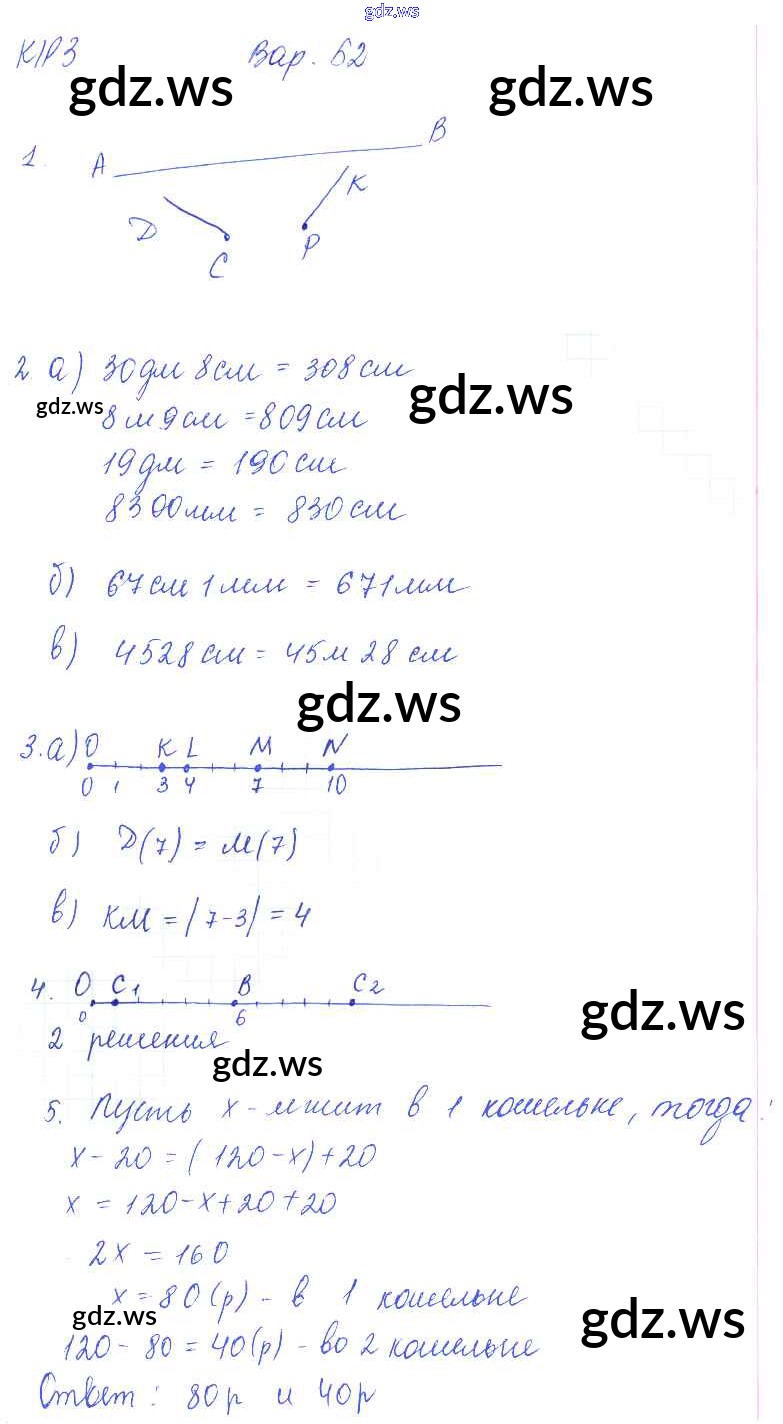 gdz.ws
К/Р3 Вар. Б2
gdz.ws gdz.ws
1. A B
D K
C P
2. а) 30дм 8см = 308см
gdz.ws
gdz.ws 8м 9см = 809см
19дм = 190см
8300мм = 830см
б) 67см 1мм = 671мм
в) 4528см = 45м 28см
gdz.ws
3. а) O K L M N
0 1 3 4 7 10
б) D(7) = M(7)
в) KM = |7-3| = 4
4. O C1 B C2
0 6
gdz.ws
2 решения
gdz.ws
5. Пусть x - лежит в 1 кошельке, тогда:
x - 20 = (120-x)+20
x = 120-x+20+20
2x = 160
x = 80(р) - в 1 кошельке
gdz.ws gdz.ws
120 - 80 = 40(р) - во 2 кошельке
Ответ: 80р и 40р